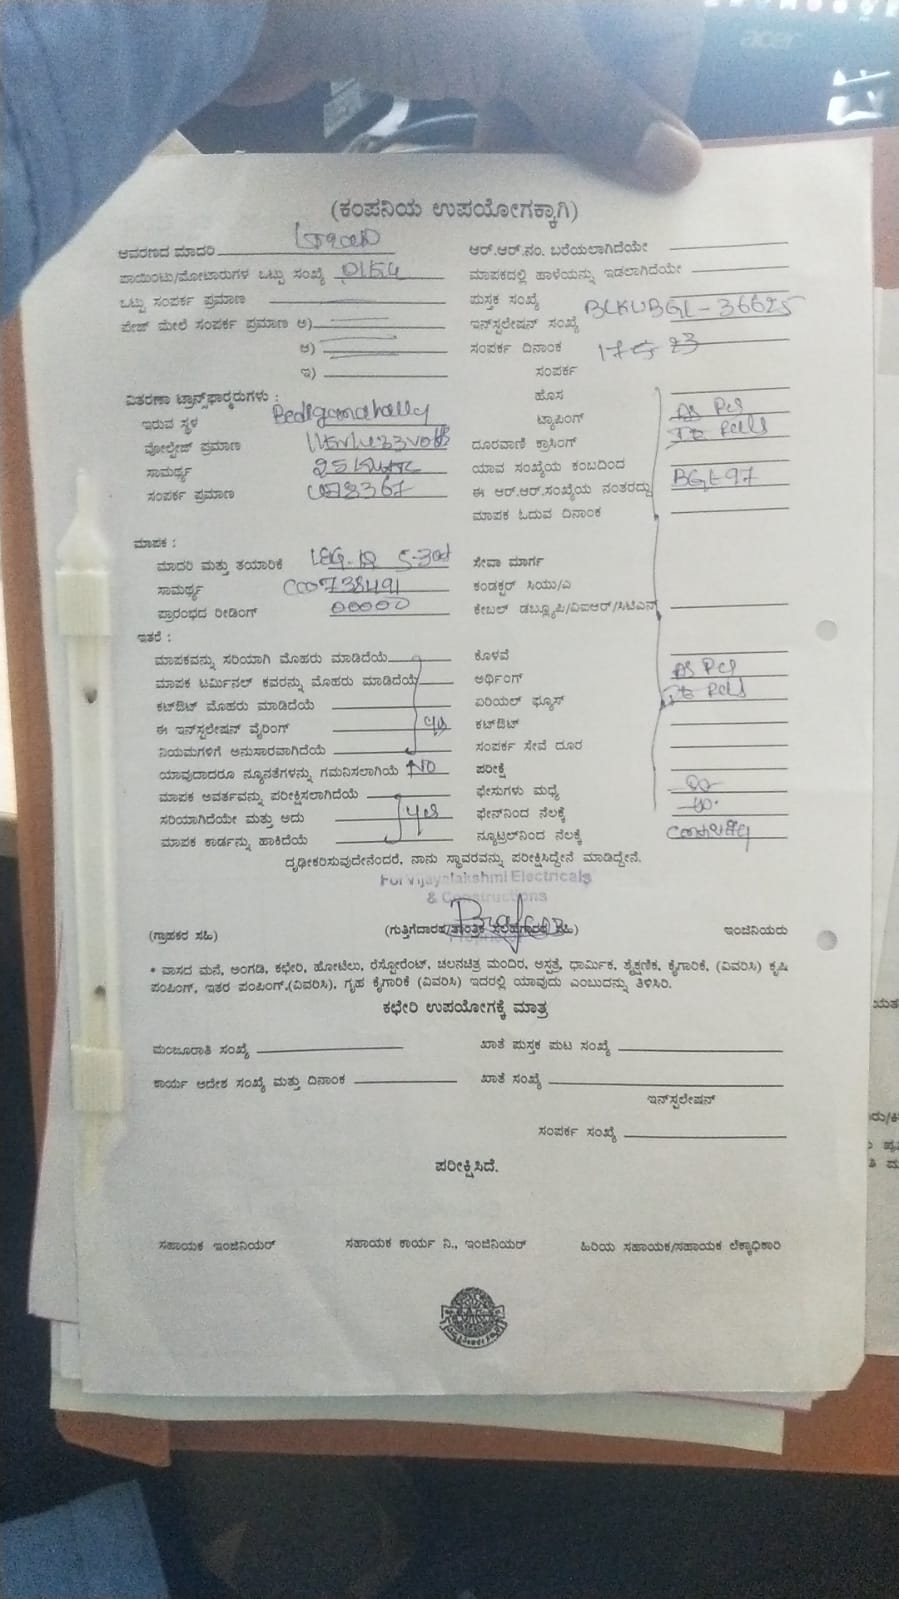 acer
(ಕಂಪನಿಯ ಉಪಯೋಗಕ್ಕಾಗಿ)
ಆವರಣದ ಮಾದರಿ
ಪಾಯಿಂಟು/ಮೋಟಾರುಗಳ ಒಟ್ಟು ಸಂಖ್ಯೆ
ಒಟ್ಟು ಸಂಪರ್ಕ ಪ್ರಮಾಣ
ಪೇಜ್ ಮೇಲೆ ಸಂಪರ್ಕ ಪ್ರಮಾಣ ಅ)
ಆ)
ಇ)
ವಿತರಣಾ ಟ್ರಾನ್ಸ್‌ಫಾರ್ಮರುಗಳು :
ಇರುವ ಸ್ಥಳ Bediganahally
ವೋಲ್ಟೇಜ್ ಪ್ರಮಾಣ
ಸಾಮರ್ಥ್ಯ
ಸಂಪರ್ಕ ಪ್ರಮಾಣ
ಮಾಪಕ :
ಮಾದರಿ ಮತ್ತು ತಯಾರಿಕೆ
ಸಾಮರ್ಥ್ಯ
ಪ್ರಾರಂಭದ ರೀಡಿಂಗ್ 00000
ಇತರೆ :
ಮಾಪಕವನ್ನು ಸರಿಯಾಗಿ ಮೊಹರು ಮಾಡಿದೆಯೆ
ಮಾಪಕ ಟರ್ಮಿನಲ್ ಕವರನ್ನು ಮೊಹರು ಮಾಡಿದೆಯೆ
ಕಟ್‌ಔಟ್ ಮೊಹರು ಮಾಡಿದೆಯೆ
ಈ ಇನ್‌ಸ್ಟಲೇಷನ್ ವೈರಿಂಗ್ yes
ನಿಯಮಗಳಿಗೆ ಅನುಸಾರವಾಗಿದೆಯೆ
ಯಾವುದಾದರೂ ನ್ಯೂನತೆಗಳನ್ನು ಗಮನಿಸಲಾಗಿಯೆ NO
ಮಾಪಕ ಅವರ್ತವನ್ನು ಪರೀಕ್ಷಿಸಲಾಗಿದೆಯೆ
ಸರಿಯಾಗಿದೆಯೇ ಮತ್ತು ಅದು yes
ಮಾಪಕ ಕಾರ್ಡನ್ನು ಹಾಕಿದೆಯೆ
ಆರ್.ಆರ್.ನಂ. ಬರೆಯಲಾಗಿದೆಯೇ
ಮಾಪಕದಲ್ಲಿ ಹಾಳೆಯನ್ನು ಇಡಲಾಗಿದೆಯೇ
ಪುಸ್ತಕ ಸಂಖ್ಯೆ
ಇನ್‌ಸ್ಟಲೇಷನ್ ಸಂಖ್ಯೆ BLKUBGL-36625
ಸಂಪರ್ಕ ದಿನಾಂಕ
ಸಂಪರ್ಕ
ಹೊಸ
ಟ್ಯಾಪಿಂಗ್
ದೂರವಾಣಿ ಕ್ರಾಸಿಂಗ್
ಯಾವ ಸಂಖ್ಯೆಯ ಕಂಬದಿಂದ
ಈ ಆರ್.ಆರ್.ಸಂಖ್ಯೆಯ ನಂತರದ್ದು
ಮಾಪಕ ಓದುವ ದಿನಾಂಕ
ಸೇವಾ ಮಾರ್ಗ
ಕಂಡಕ್ಟರ್ ಸಿಯು/ಎ
ಕೇಬಲ್ ಡಬ್ಲ್ಯೂಪಿ/ವಿಐಆರ್/ಸಿಟಿಎಸ್
ಕೊಳವೆ
ಅರ್ಥಿಂಗ್
ಏರಿಯಲ್ ಫ್ಯೂಸ್
ಕಟ್‌ಔಟ್
ಸಂಪರ್ಕ ಸೇವೆ ದೂರ
ಪರೀಕ್ಷೆ
ಫೇಸುಗಳು ಮಧ್ಯೆ
ಫೇಸ್‌ನಿಂದ ನೆಲಕ್ಕೆ
ನ್ಯೂಟ್ರಲ್‌ನಿಂದ ನೆಲಕ್ಕೆ
ದೃಢೀಕರಿಸುವುದೇನೆಂದರೆ, ನಾನು ಸ್ಥಾವರವನ್ನು ಪರೀಕ್ಷಿಸಿದ್ದೇನೆ ಮಾಡಿದ್ದೇನೆ.
For Vijayalakshmi Electricals
& Constructions
(ಗ್ರಾಹಕರ ಸಹಿ) (ಗುತ್ತಿಗೆದಾರಹ/ತಾಂತ್ರಿಕ ಸಲಹೆಗಾರರ ಸಹಿ) ಇಂಜಿನಿಯರು
* ವಾಸದ ಮನೆ, ಅಂಗಡಿ, ಕಛೇರಿ, ಹೋಟೆಲು, ರೆಸ್ಟೋರೆಂಟ್, ಚಲನಚಿತ್ರ ಮಂದಿರ, ಆಸ್ಪತ್ರೆ, ಧಾರ್ಮಿಕ, ಶೈಕ್ಷಣಿಕ, ಕೈಗಾರಿಕೆ, (ವಿವರಿಸಿ) ಕೃಷಿ
ಪಂಪಿಂಗ್, ಇತರ ಪಂಪಿಂಗ್.(ವಿವರಿಸಿ), ಗೃಹ ಕೈಗಾರಿಕೆ (ವಿವರಿಸಿ) ಇದರಲ್ಲಿ ಯಾವುದು ಎಂಬುದನ್ನು ತಿಳಿಸಿರಿ.
ಕಛೇರಿ ಉಪಯೋಗಕ್ಕೆ ಮಾತ್ರ
ಮಂಜೂರಾತಿ ಸಂಖ್ಯೆ ಖಾತೆ ಪುಸ್ತಕ ಪುಟ ಸಂಖ್ಯೆ
ಕಾರ್ಯ ಆದೇಶ ಸಂಖ್ಯೆ ಮತ್ತು ದಿನಾಂಕ ಖಾತೆ ಸಂಖ್ಯೆ
ಇನ್‌ಸ್ಟಲೇಷನ್
ಸಂಪರ್ಕ ಸಂಖ್ಯೆ
ಪರೀಕ್ಷಿಸಿದೆ.
ಸಹಾಯಕ ಇಂಜಿನಿಯರ್ ಸಹಾಯಕ ಕಾರ್ಯ ನಿ., ಇಂಜಿನಿಯರ್ ಹಿರಿಯ ಸಹಾಯಕ/ಸಹಾಯಕ ಲೆಕ್ಕಾಧಿಕಾರಿ